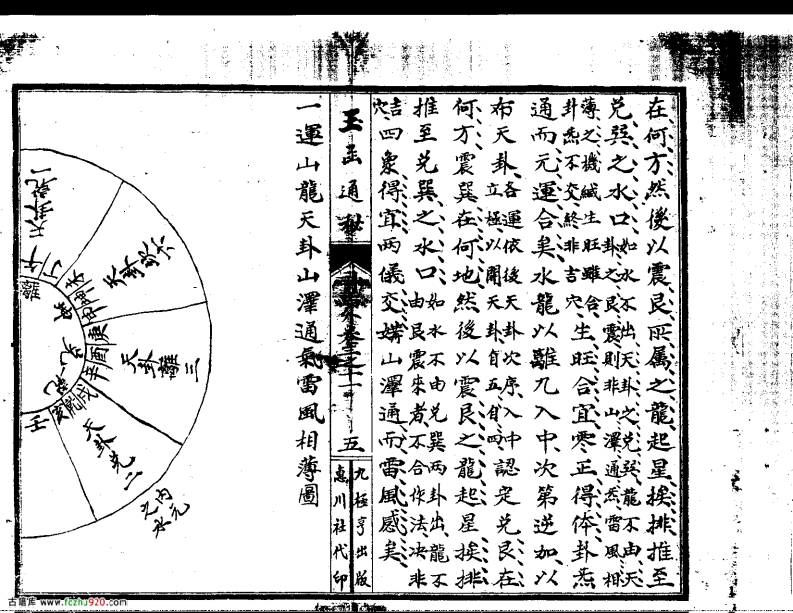 在何方然後以震艮所属之龍起星挨排推至
兌巽之水口如水不出天卦之兌巽龍不由天
卦之艮震則非山澤通然雷風相
薄之機緘生旺雖合
卦炁不交終非吉穴生旺合宜零正得体卦炁
通而元運合矣水龍以離九入中次第逆加以
布天卦各運依後天卦次序入中
立極以開天卦自五自四認定兌艮在
何方震巽在何地然後以震艮之龍起星挨排
推至兌巽之水口如水不由兌巽兩卦出龍不
由艮震來者不合作法决非
吉穴四象得宜兩儀交媾山澤通而雷風感矣
玉函通秘
五
九極亨出版
惠川社代印
一運山龍天卦山澤通氣雷風相薄圖
天卦乾一
天卦離三
天卦兌二
內元之水
丁
午
庚
酉
辛
戌
乾
壬
古籍库 www.fczhj920.com